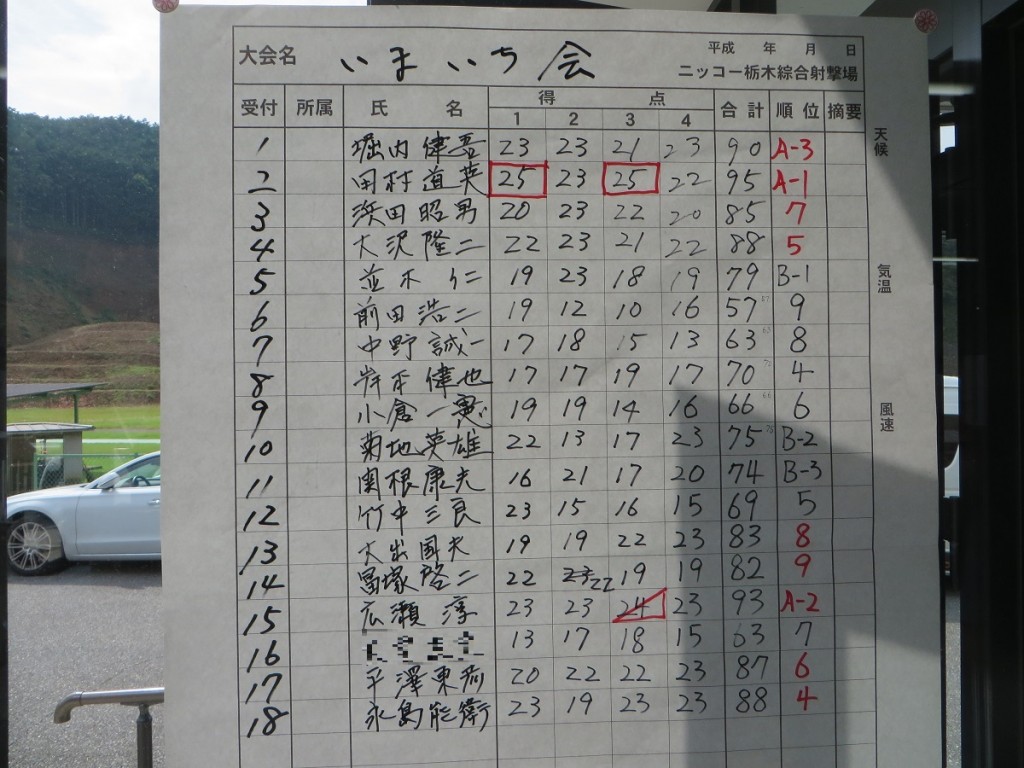 大会名 いまいち会 平成 年 月 日
ニッコー栃木綜合射撃場
受付 所属 氏 名 得 点 合計 順位 摘要
1 2 3 4
1 堀内健吾 23 23 21 23 90 A-3
2 田村道英 25 23 25 22 95 A-1
3 浜田昭男 20 23 22 20 85 7
4 大沢隆二 22 23 21 22 88 5
5 並木仁 19 23 18 19 79 B-1
6 前田浩二 19 12 10 16 57 57 9
7 中野誠一 17 18 15 13 63 63 8
8 岸本健也 17 17 19 17 70 70 4
9 小倉一憲 19 19 14 16 66 66 6
10 菊地英雄 22 13 17 23 75 75 B-2
11 関根康夫 16 21 17 20 74 B-3
12 竹中三良 23 15 16 15 69 5
13 大出国夫 19 19 22 23 83 8
14 冨塚啓二 22 23 22 19 19 82 9
15 広瀬淳 23 23 24 23 93 A-2
16 13 17 18 15 63 7
17 平澤東 20 22 22 23 87 6
18 永島能衛 23 19 23 23 88 4
天候
気温
風速